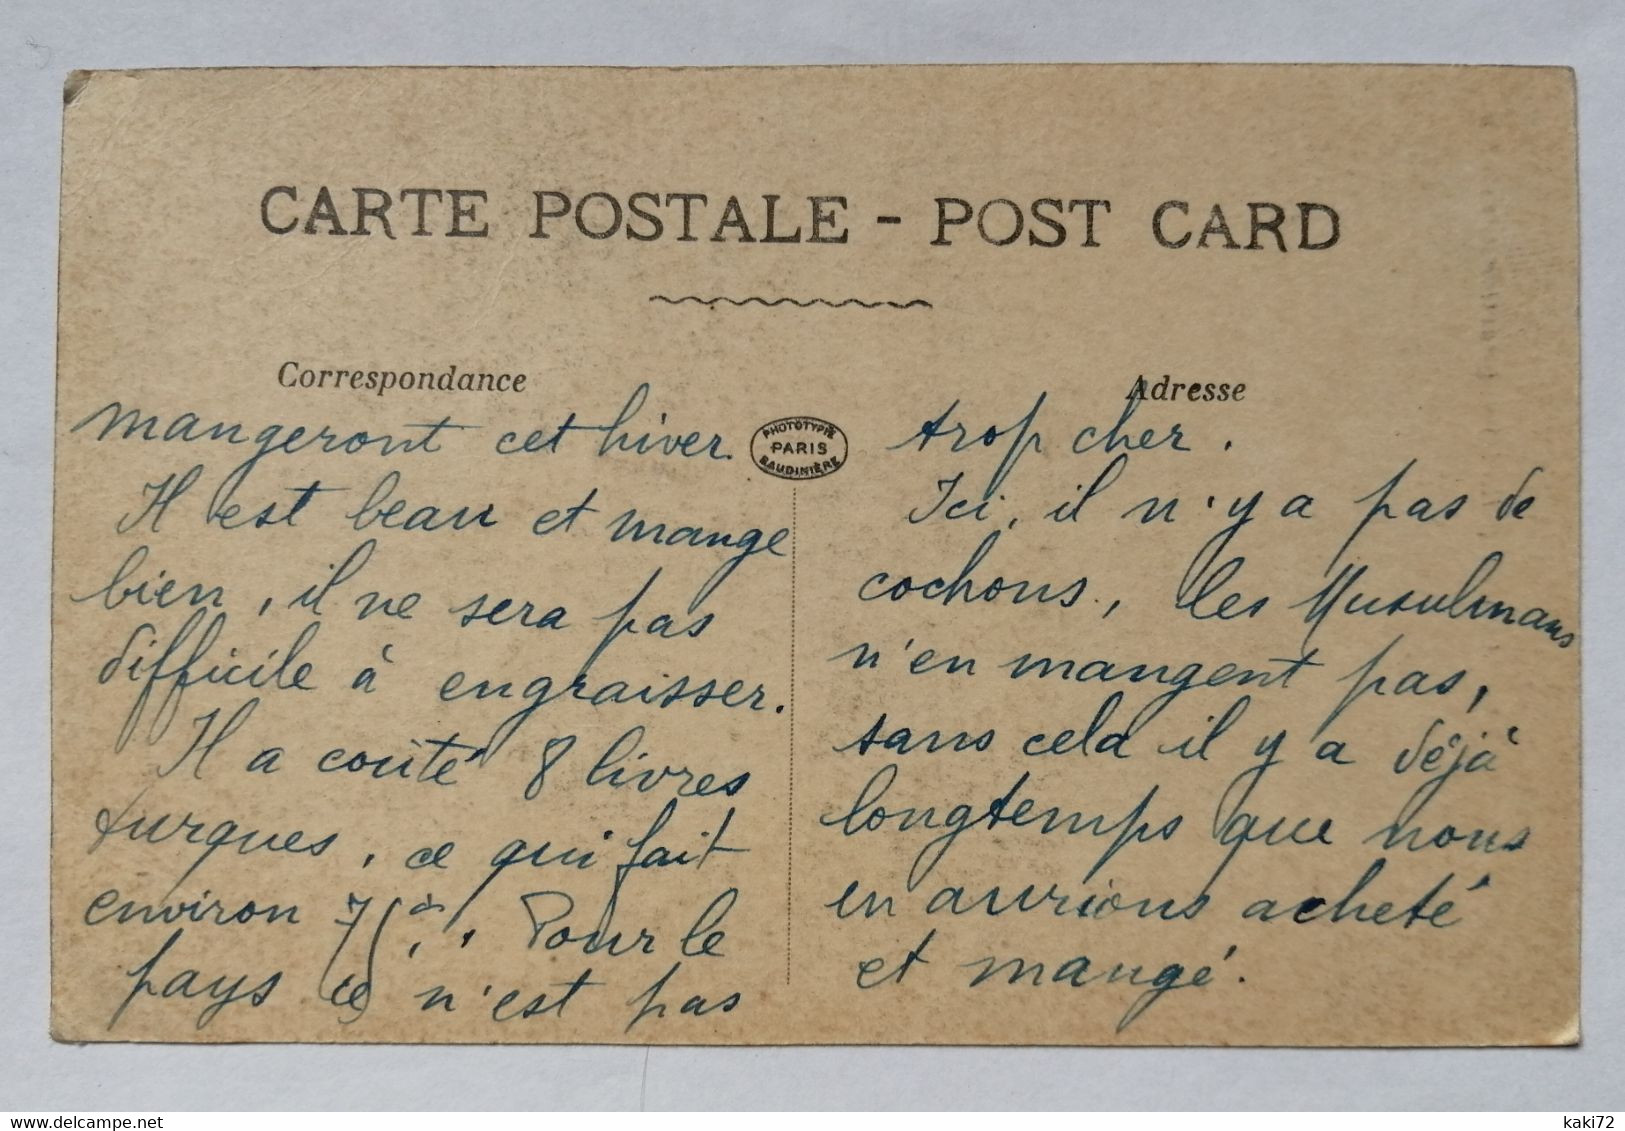 CARTE POSTALE - POST CARD
Correspondance
mangeront cet hiver.
Il est beau et mange
bien, il ne sera pas
difficile à engraisser.
Il a coûté 8 livres
turques, ce qui fait
environ 75
Pour le
pays ce n'est pas
PHOTOTYPIE
PARIS
BAUDINIÈRE
Adresse
trop cher.
Ici, il n'y a pas de
cochons, les Musulmans
n'en mangent pas,
sans cela il y a déjà
longtemps que nous
en aurions acheté
et mangé.
kaki72